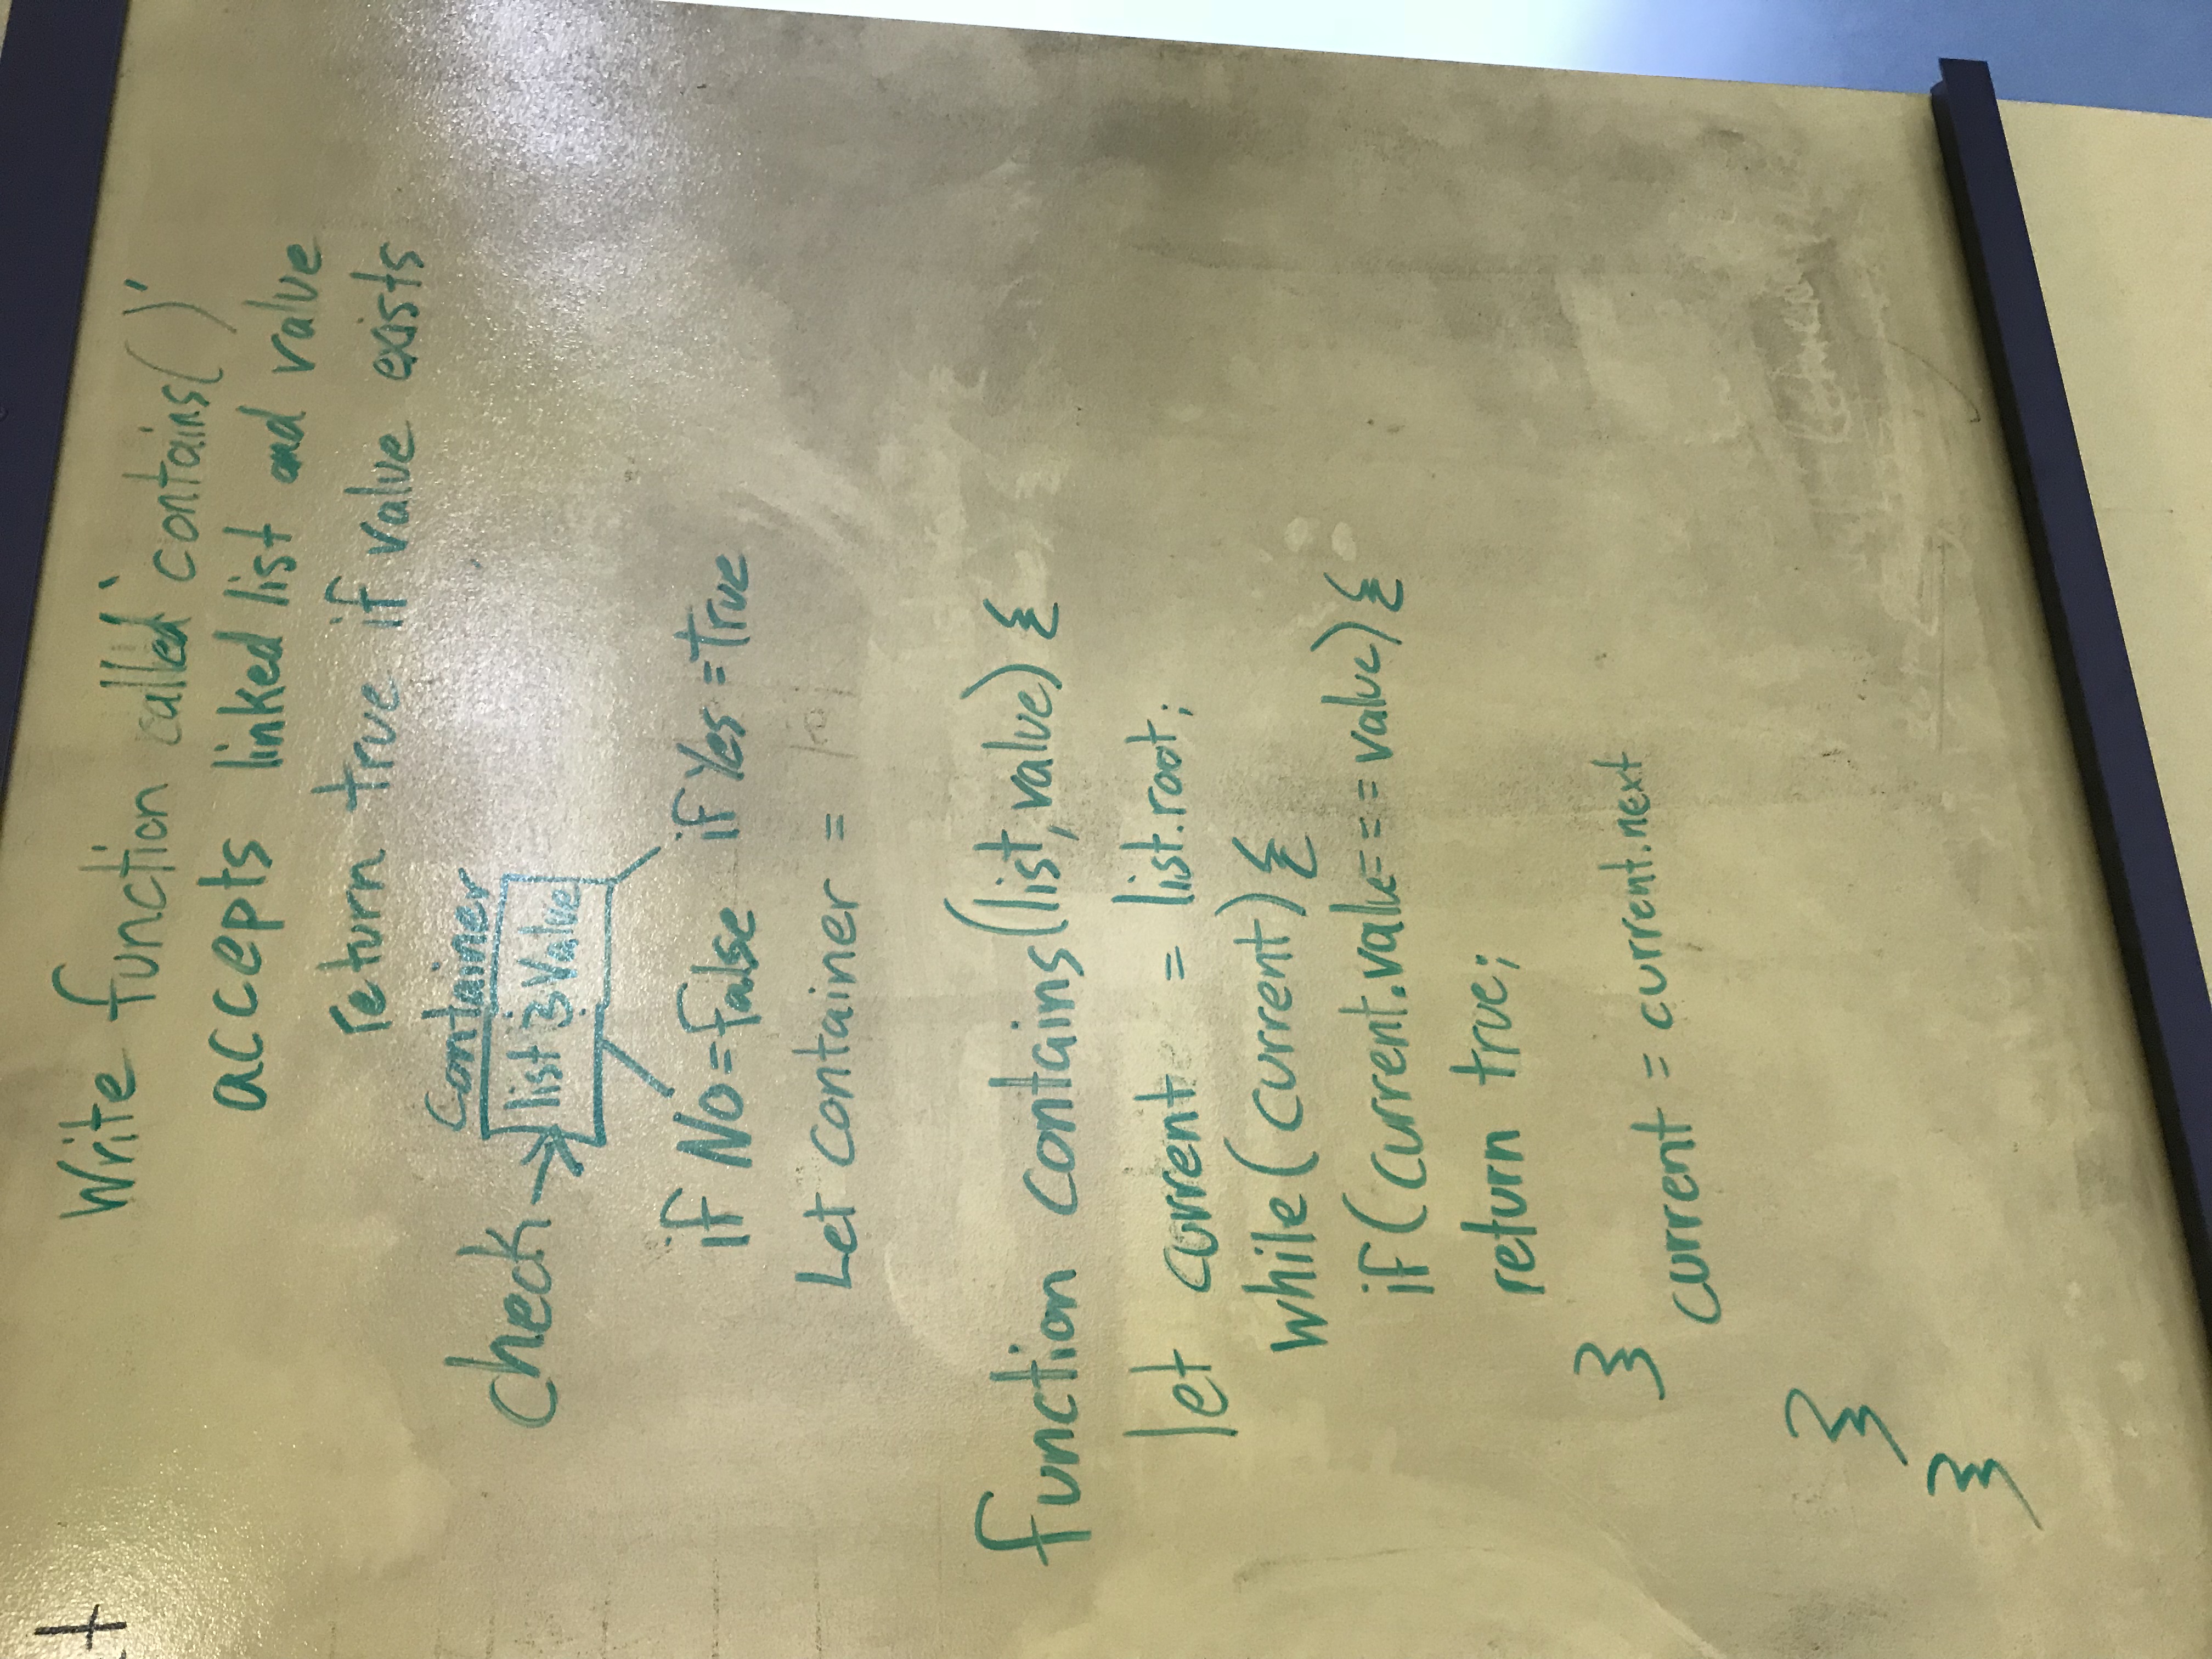 Write function called 'contains( )'
accepts linked list and value
return true if value exists
Container
check list & Value
if No = false if Yes = True
Let container =
function contains(list, value) {
let current = list.root;
while (current) {
if (current.value === value) {
return true;
}
current = current.next
}
}